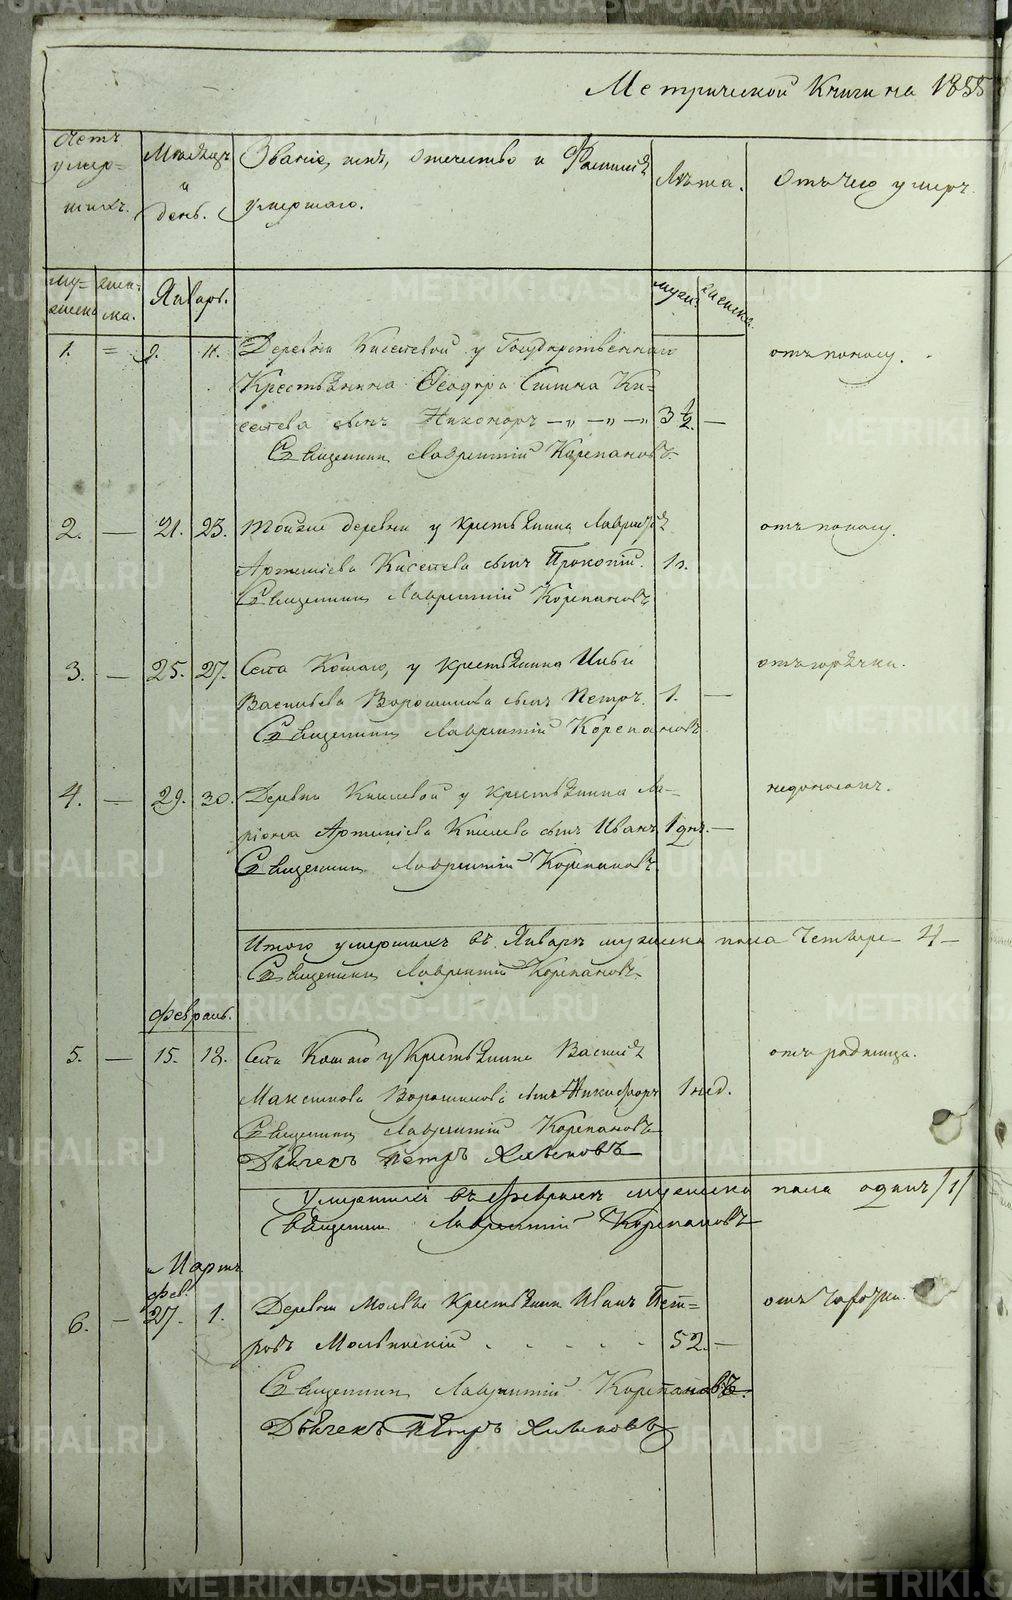 Метрической Книги на 1855
Счетъ умер-шихъ.
Мѣсяцъ и день.
Званіе, имя, отечество и Фамилія умершаго.
Лѣта.
Отъ чего умеръ.
му-жеска
жен-ска.
Январь.
мужс.
женска.
1. = 9. 11. Деревни Киселевой у Государственнаго отъ поносу.
Крестьянина Ѳеодора Ки-
селева сынъ Никоноръ — „ — „ — „ 3 1/2. —
Священникъ Лаврентій Корепановъ.
2. — 21. 23. Тойже деревни у крестьянина Лаврентія отъ поносу.
Артемьева Киселева сынъ Прокопій. 1 г.
Священникъ Лаврентій Корепановъ
3. — 25. 27. Села Кошаго, у крестьянина Ильи отъ горячки.
Васильева Ворошилова сынъ Петръ. 1. —
Священникъ Лаврентій Корепановъ
4. — 29. 30. Деревни Киселевой у крестьянина Ла- недоносокъ.
ріона Артемьева Киселева сынъ Иванъ 1 днь. —
Священникъ Лаврентій Корепановъ.
Итого умершихъ въ Январѣ мужеска пола Четыре — 4 —
Священникъ Лаврентій Корепановъ.
Февраль.
5. — 15. 18. Села Кошаго у Крестьянина Василія отъ родимца.
Максимова Ворошилова сынъ Никифоръ 1 нед.
Священникъ Лаврентій Корепановъ
Дьячекъ Петръ
Умершихъ въ Февралѣ мужеска пола одинъ /1/
Священникъ Лаврентій Корепановъ
Мартъ
фев.
6. — 27. 1. Деревни Мольки Крестьянинъ Иванъ Пет- отъ чахотки.
ровъ . . . . . 52. —
Священникъ Лаврентій Корепановъ.
Дьячекъ Петръ
METRIKI.GASO-URAL.RU